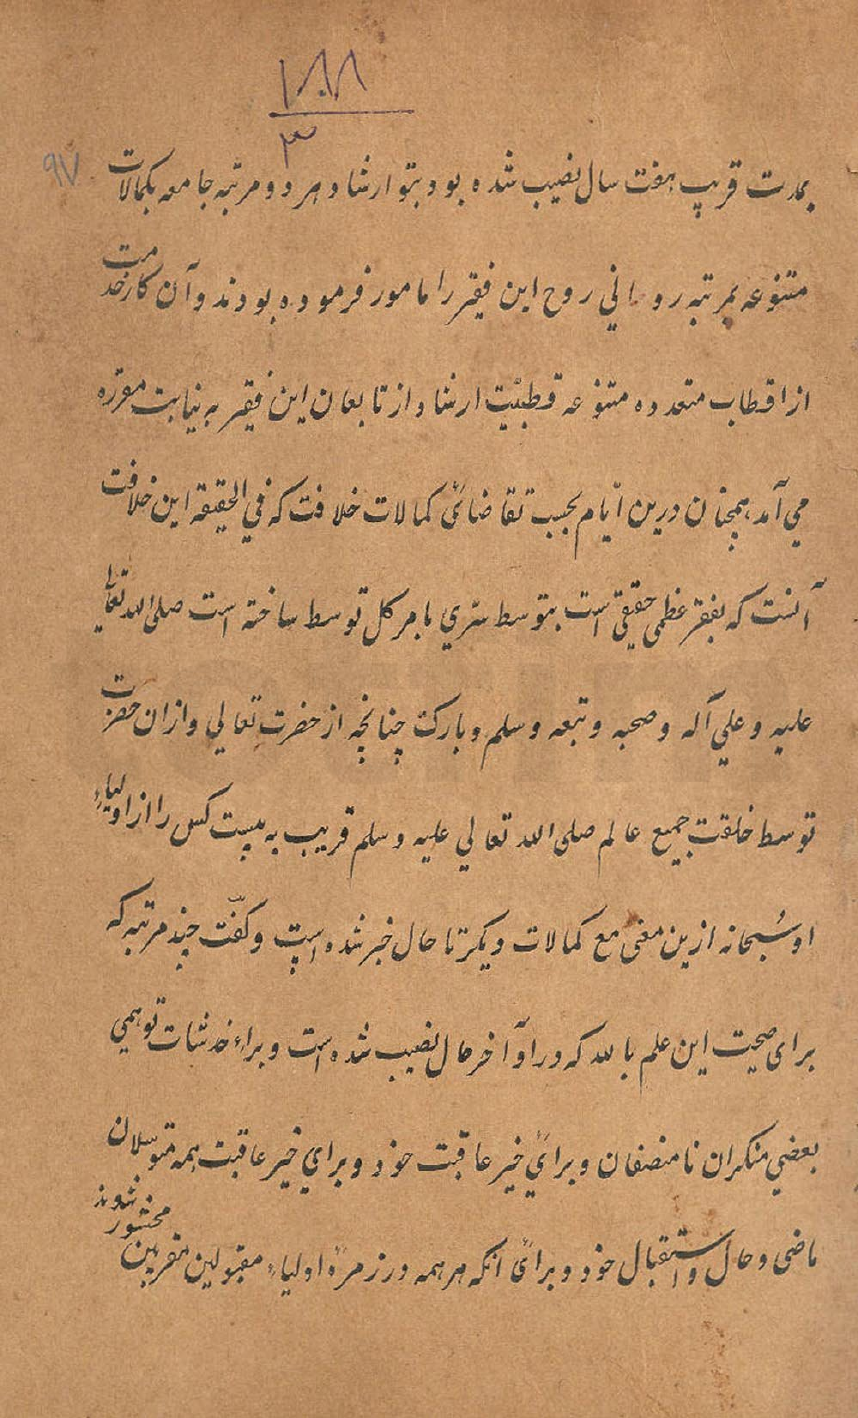 ۱۸۸
۳
۹۷
بمدت قریب هفت سال نصیب شده بود بتو ارشاد هر دو مرتبه جامعه بکمالات
متنوعه بمرتبه روحانی روح این فقیر را مامور فرموده بودند و آن کار خدمت
از اقطاب متعدده متنوعه قطبیّت ارشاد از تابعان این فقیر به نیابت مقرّره
می آمد همچنان درین ایّام بحسب تقاضائ کمالات خلافت که فی الحقیقة این خلافت
آنست که بفقر عظمی حقیقی است بتوسط سرّی بامر کل توسط ساخته است صلی الله تعالی
علیه و علی آله و صحبه و تبعه و سلم و بارک چنانچه از حضرت تعالی و ازان حضرت
توسط خلقت جمیع عالم صلی الله تعالی علیه و سلم قریب به بیست کس را از اولیاء
او سُبحانه ازین معنی مع کمالات دیگر تا حال خبر شده است و کفت چند مرتبه که
برای صحیت این علم بالله که در اوآخر حال نصیب شده است و براء خدشات توهمی
بعضی منکران نا منصفان و برائ خیر عاقبت خود و برای خیر عاقبت همه متوسلان
ماضی و حال و استقبال خود و برائ انکه هر همه در زمرهٔ اولیاء مقبولین مقربین
محشور شوند